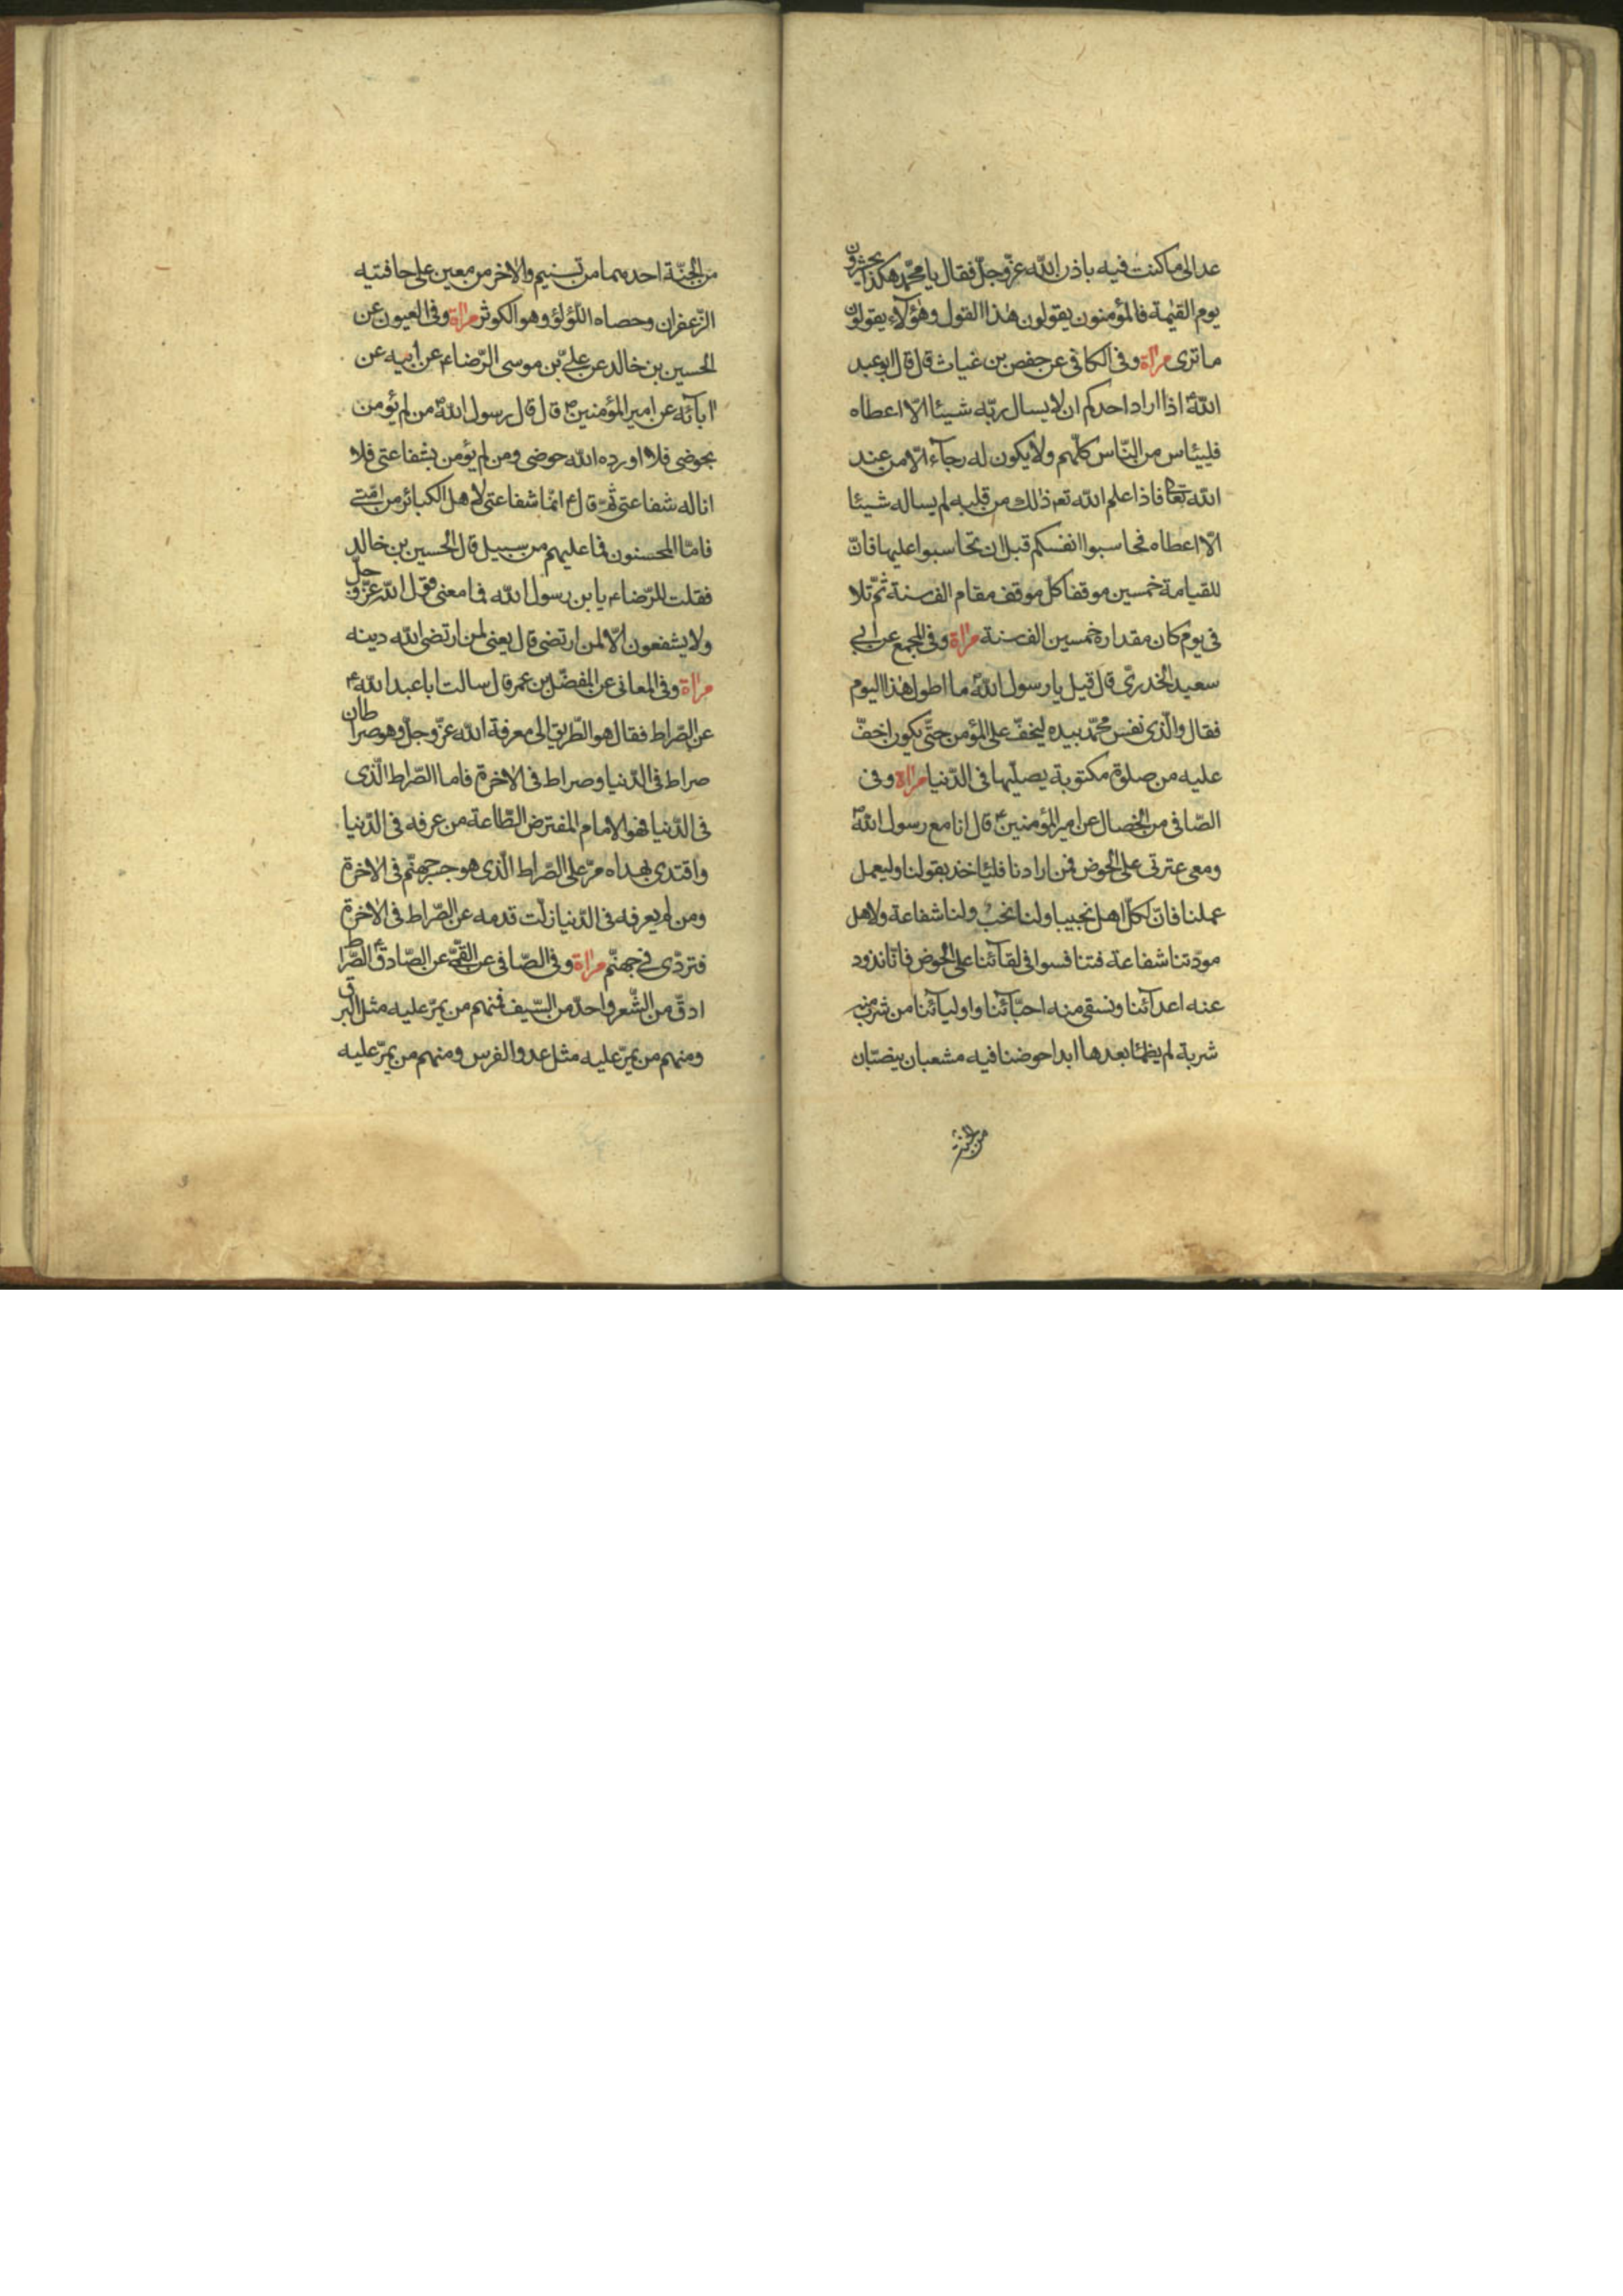 عد الى ما كنت فيه باذن الله عزّ وجلّ فقال يا محمّد هكذا يحشرون
يوم القيمة فالمؤمنون يقولون هذا القول وهؤلاء يقولون
ما ترى مرآة وفى الكافى عن حفص بن غياث قال قال ابو عبد
اللهؑ اذا اراد احدكم ان لا يسال ربّه شيئا الّا اعطاه
فلييئاس من النّاس كلّهم ولا يكون له رجآء الّا من عند
الله تعالى فاذا علم الله تعم ذلك من قلبه لم يساله شيئا
الّا اعطاه فحاسبوا انفسكم قبل ان تحاسبوا عليها فانّ
للقيامة خمسين موقفا كل موقف مقام الف سنة ثمّ تلا
فى يوم كان مقداره خمسين الف سنة مرآة وفى المجمع عن ابى
سعيد الخدرىّ قال قيل يا رسول الله ما اطول هذا اليوم
فقال والّذى نفس محمّد بيده ليخفّ على المؤمن حتّى يكون اخفّ
عليه من صلوة مكتوبة يصلّيها فى الدّنيا مرآة وفى
الصّافى من الخصال عن امير المؤمنينؑ قال انا مع رسول اللهؐ
ومعى عترتى على الحوض فمن ارادنا فليئاخذ بقولنا وليعمل
عملنا فانّ لكلّ اهل نجيبا ولنا نخب ولنا شفاعة ولاهل
مودّتنا شفاعة فتنافسوا فى لقآئنا على الحوض فانّا نذود
عنه اعدآئنا ونسقى منه احبّآئنا واوليآئنا من شرب منه
شربة لم يظمئا بعدها ابدا حوضنا فيه مشعبان ينصبّان
من الجنة
من الجنّة احدهما من تسنيم والاخر من معين على حافتيه
الزّعفران وحصاه اللّؤلؤ وهو الكوثر مرآة وفى العيون عن
الحسين بن خالد عن علىّ بن موسى الرّضاء عن ابيه عن
ابآئه عن امير المؤمنينؑ قال قال رسول اللهؐ من لم يؤمن
بحوضى فلا اورده الله حوضى ومن لم يؤمن بشفاعتى فلا
اناله شفاعتى ثمّ قالؑ انّما شفاعتى لاهل الكبائر من امّتى
فامّا المحسنون فما عليهم من سبيل قال الحسين بن خالد
فقلت للرّضاء يابن رسول الله فما معنى قول الله عزّ وجلّ
ولا يشفعون الّا لمن ارتضى قال يعنى لمن ارتضى الله دينه
مرآة وفى المعانى عن المفضّل بن عمر قال سالت ابا عبد اللهؑ
عن الصّراط فقال هو الطّريق الى معرفة الله عزّ وجلّ وهو صراطان
صراط فى الدّنيا وصراط فى الاخرة فاما الصّراط الّذى
فى الدّنيا فهو الامام المفترض الطّاعة من عرفه فى الدّنيا
واقتدى بهداه مرّ على الصّراط الّذى هو جسر جهنّم فى الاخرة
ومن لم يعرفه فى الدّنيا زلّت قدمه عن الصّراط فى الاخرة
فتردّى فى جهنّم مرآة وفى الصّافى عن القمّىّ عن الصّادقؑ الصّراط
ادقّ من الشّعر واحدّ من السّيف فمنهم من يمرّ عليه مثل البرق
ومنهم من يمرّ عليه مثل عدو الفرس ومنهم من يمرّ عليه